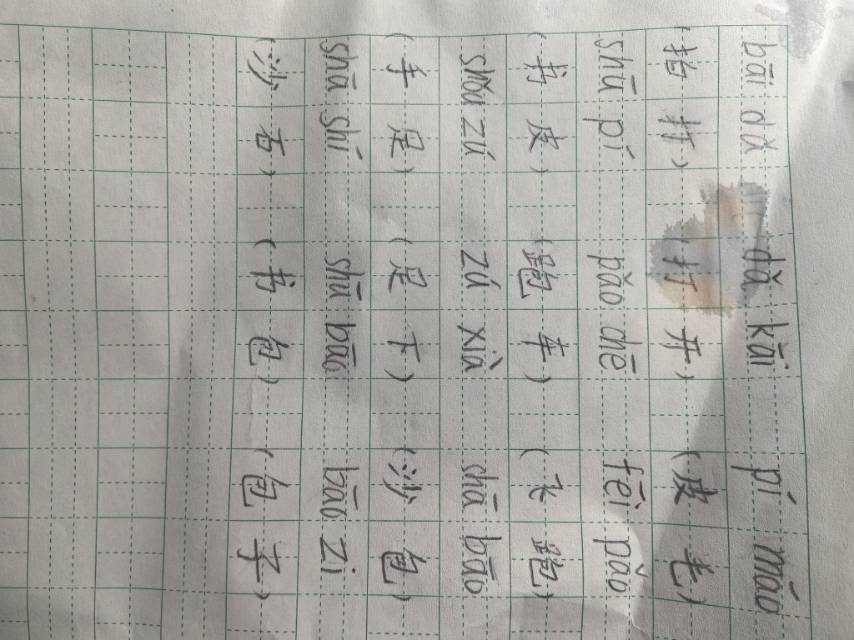 bāi dǎ dǎ kāi pí máo
(拍打) (打开) (皮毛)
shū pí pǎo chē fēi pǎo
(书皮) (跑车) (飞跑)
shǒu zú zú xià shā bāo
(手足) (足下) (沙包)
shā shí shū bāo bāo zi
(沙石) (书包) (包子)